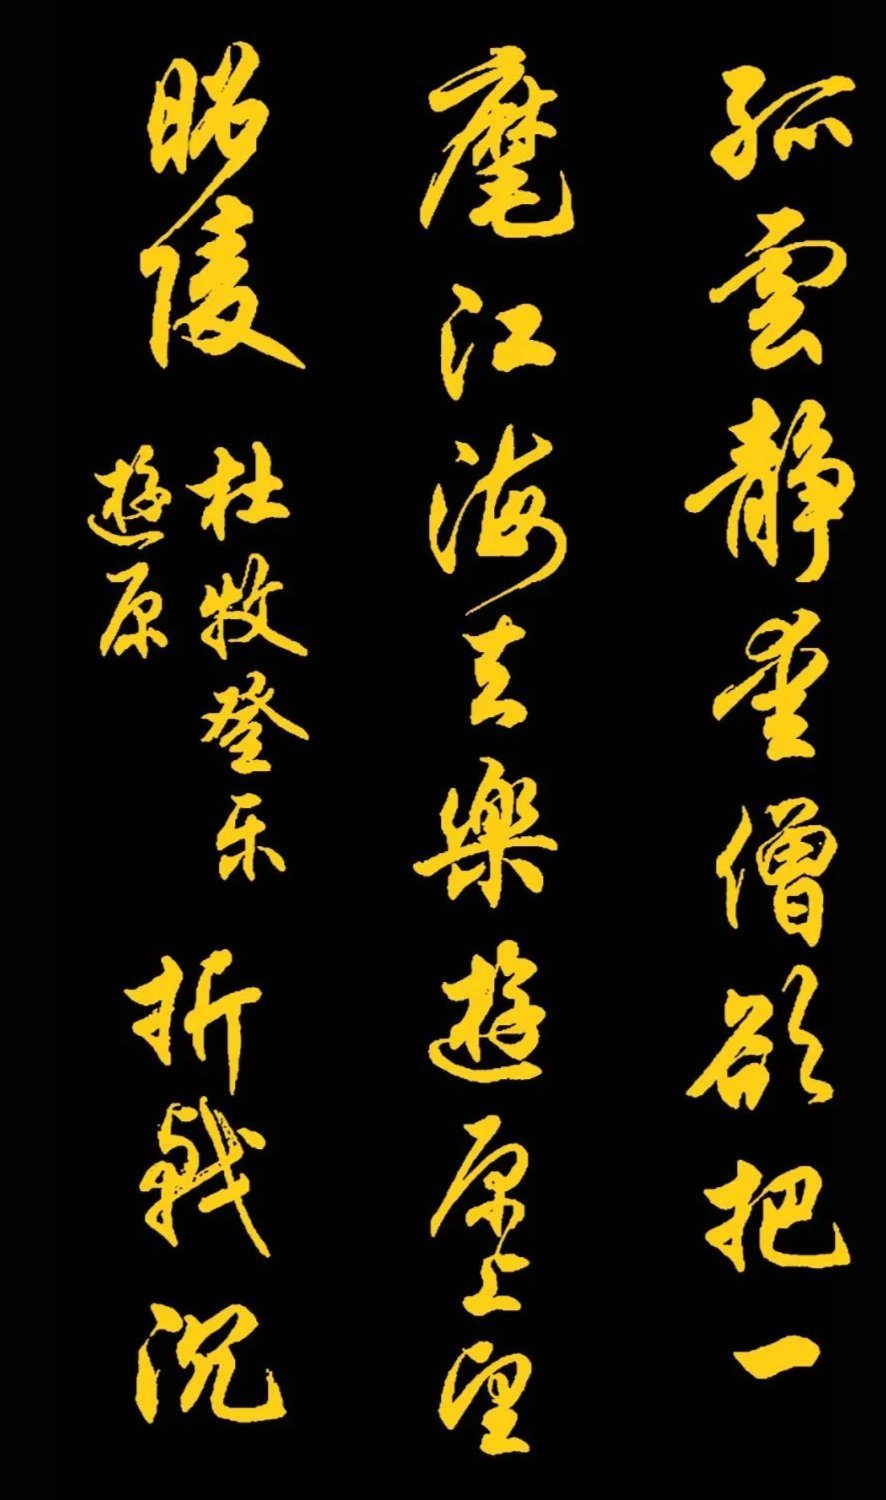 孤雲静愛僧欲把一
麾江海去樂遊原上望
昭陵
杜牧登乐
遊原
折戟沉